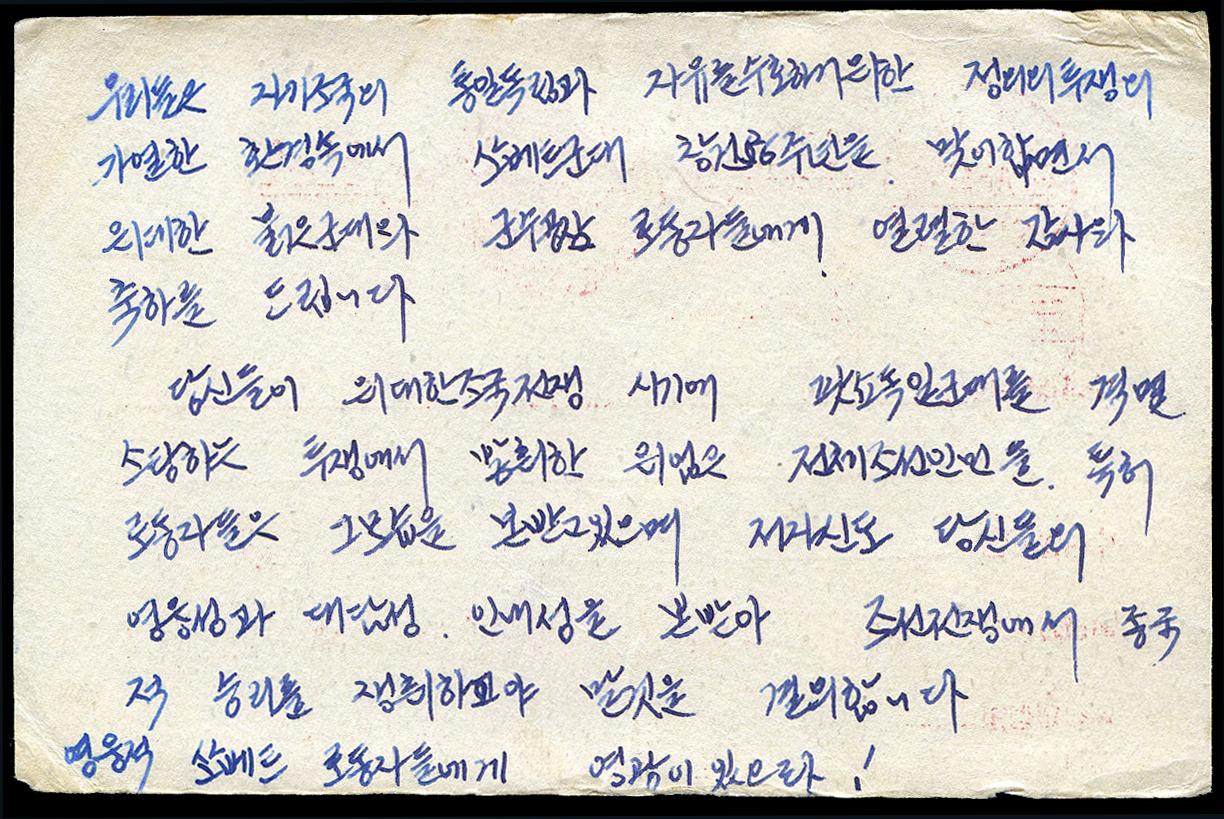 우리들은 자기조국의 통일독립과 자유를수호하기위한 정의의투쟁의
가열한 환경속에서 쏘베트군대 창건 주년을 맞이함면서
위대한 붉은군대와 로동자들에게 열렬한 감사와
축하를 드립니다
당신들이 위대한조국전쟁 시기에 팟쇼독일군대를 격멸
소탕하는 투쟁에서 발휘한 위업은 전체조선인민들. 특히
로동자들은 그모습을 본받고있으며 저자신도 당신들의
영웅성과 대담성. 인내성을 본받아 조선전쟁에서 종국
적 승리를 쟁취하고야 말것을 결의합니다
영웅적 쏘베트 로동자들에게 영광이 있으라!